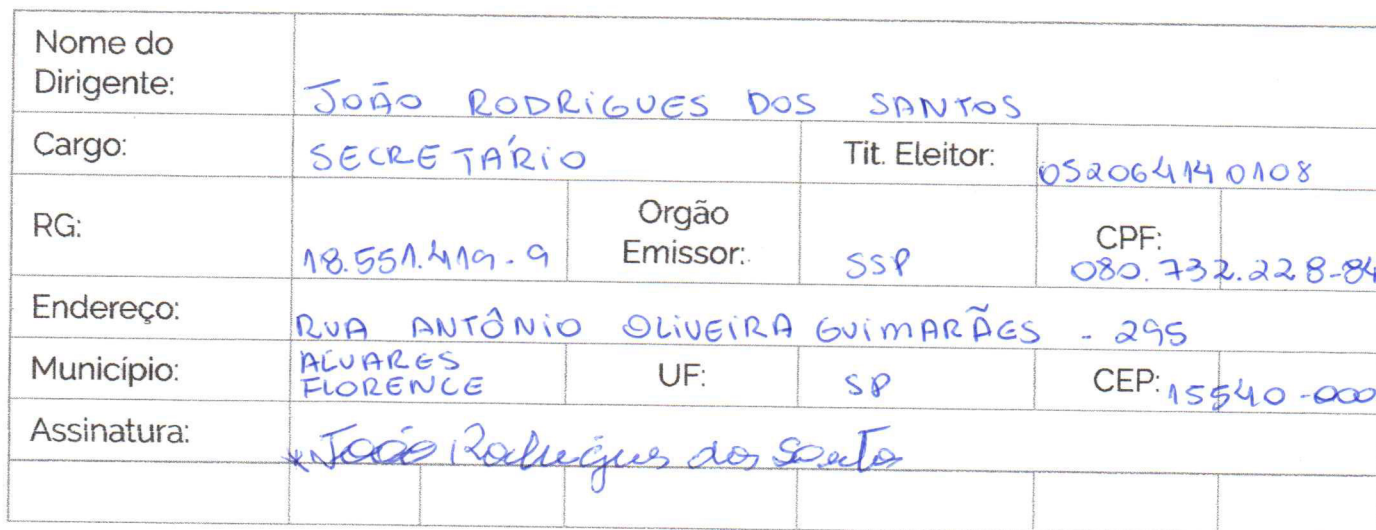 Nome do
Dirigente: JOÃO RODRIGUES DOS SANTOS
Cargo: SECRETÁRIO Tit. Eleitor: 052064140108
RG: 18.551.419-9 Orgão Emissor: SSP CPF: 080.732.228-84
Endereço: RUA ANTÔNIO OLIVEIRA GUIMARÃES - 295
Município: ALVARES FLORENCE UF: SP CEP: 15540-000
Assinatura: *João Rodrigues dos Santos